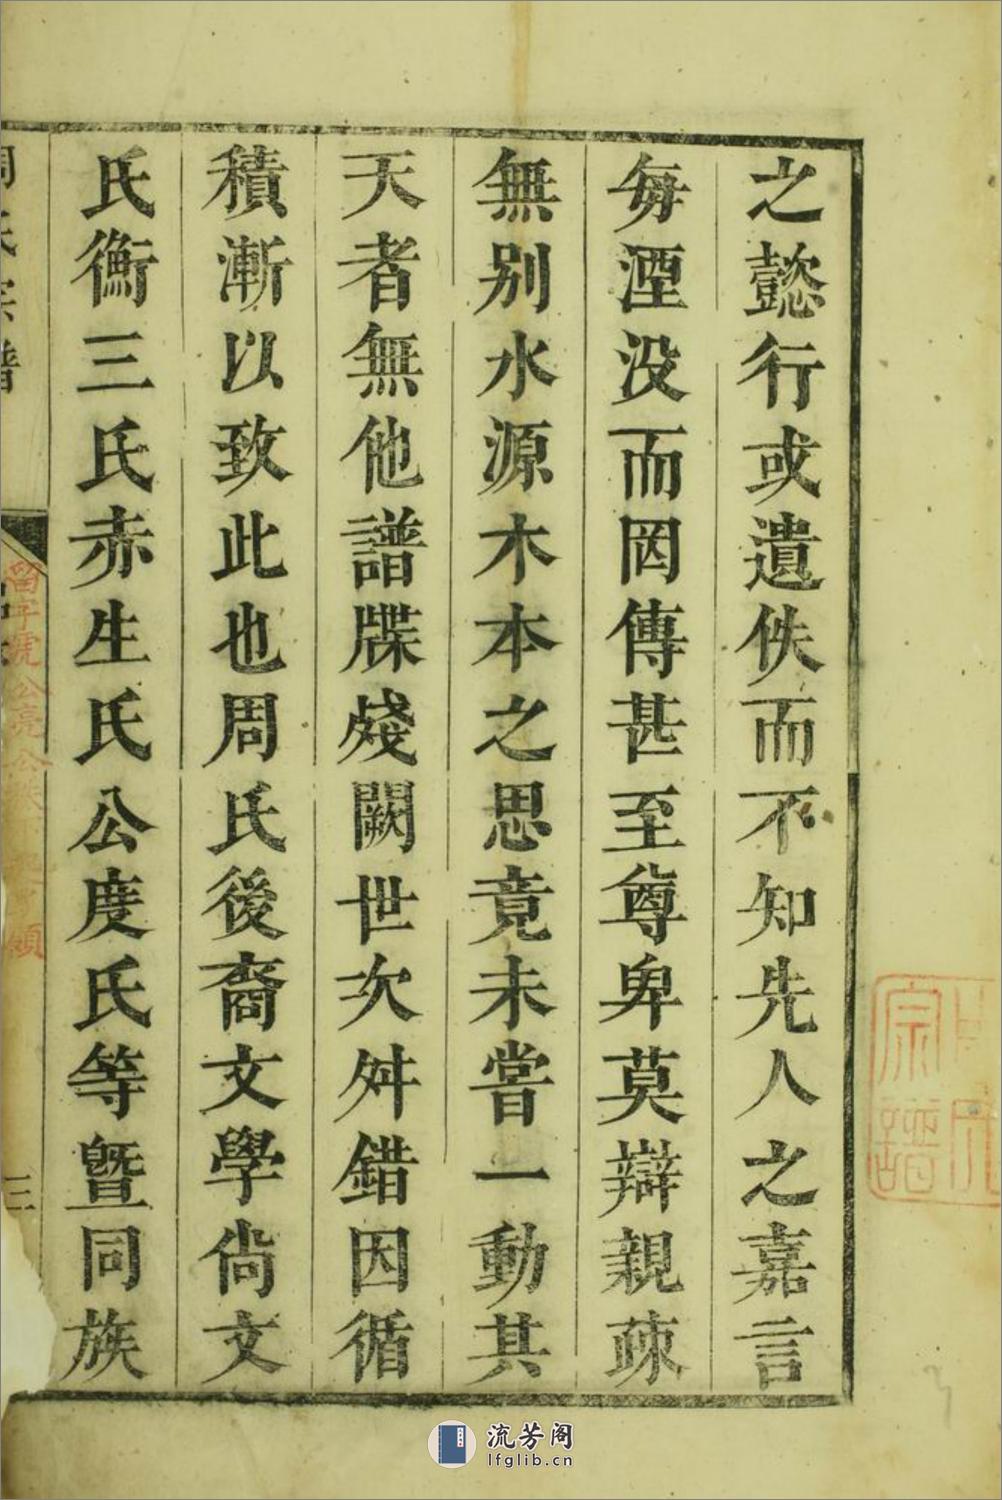 之懿行或遺佚而不知先人之嘉言
每湮没而罔傳甚至尊卑莫辯親疎
無别水源木本之思竟未嘗一動其
天者無他譜牒殘闕世次舛錯因循
積漸以致此也周氏後裔文學尙文
氏衡三氏赤生氏公度氏等曁同族
周氏宗譜
三
留字號公亮公
領
宗譜
流芳阁
lfglib.cn